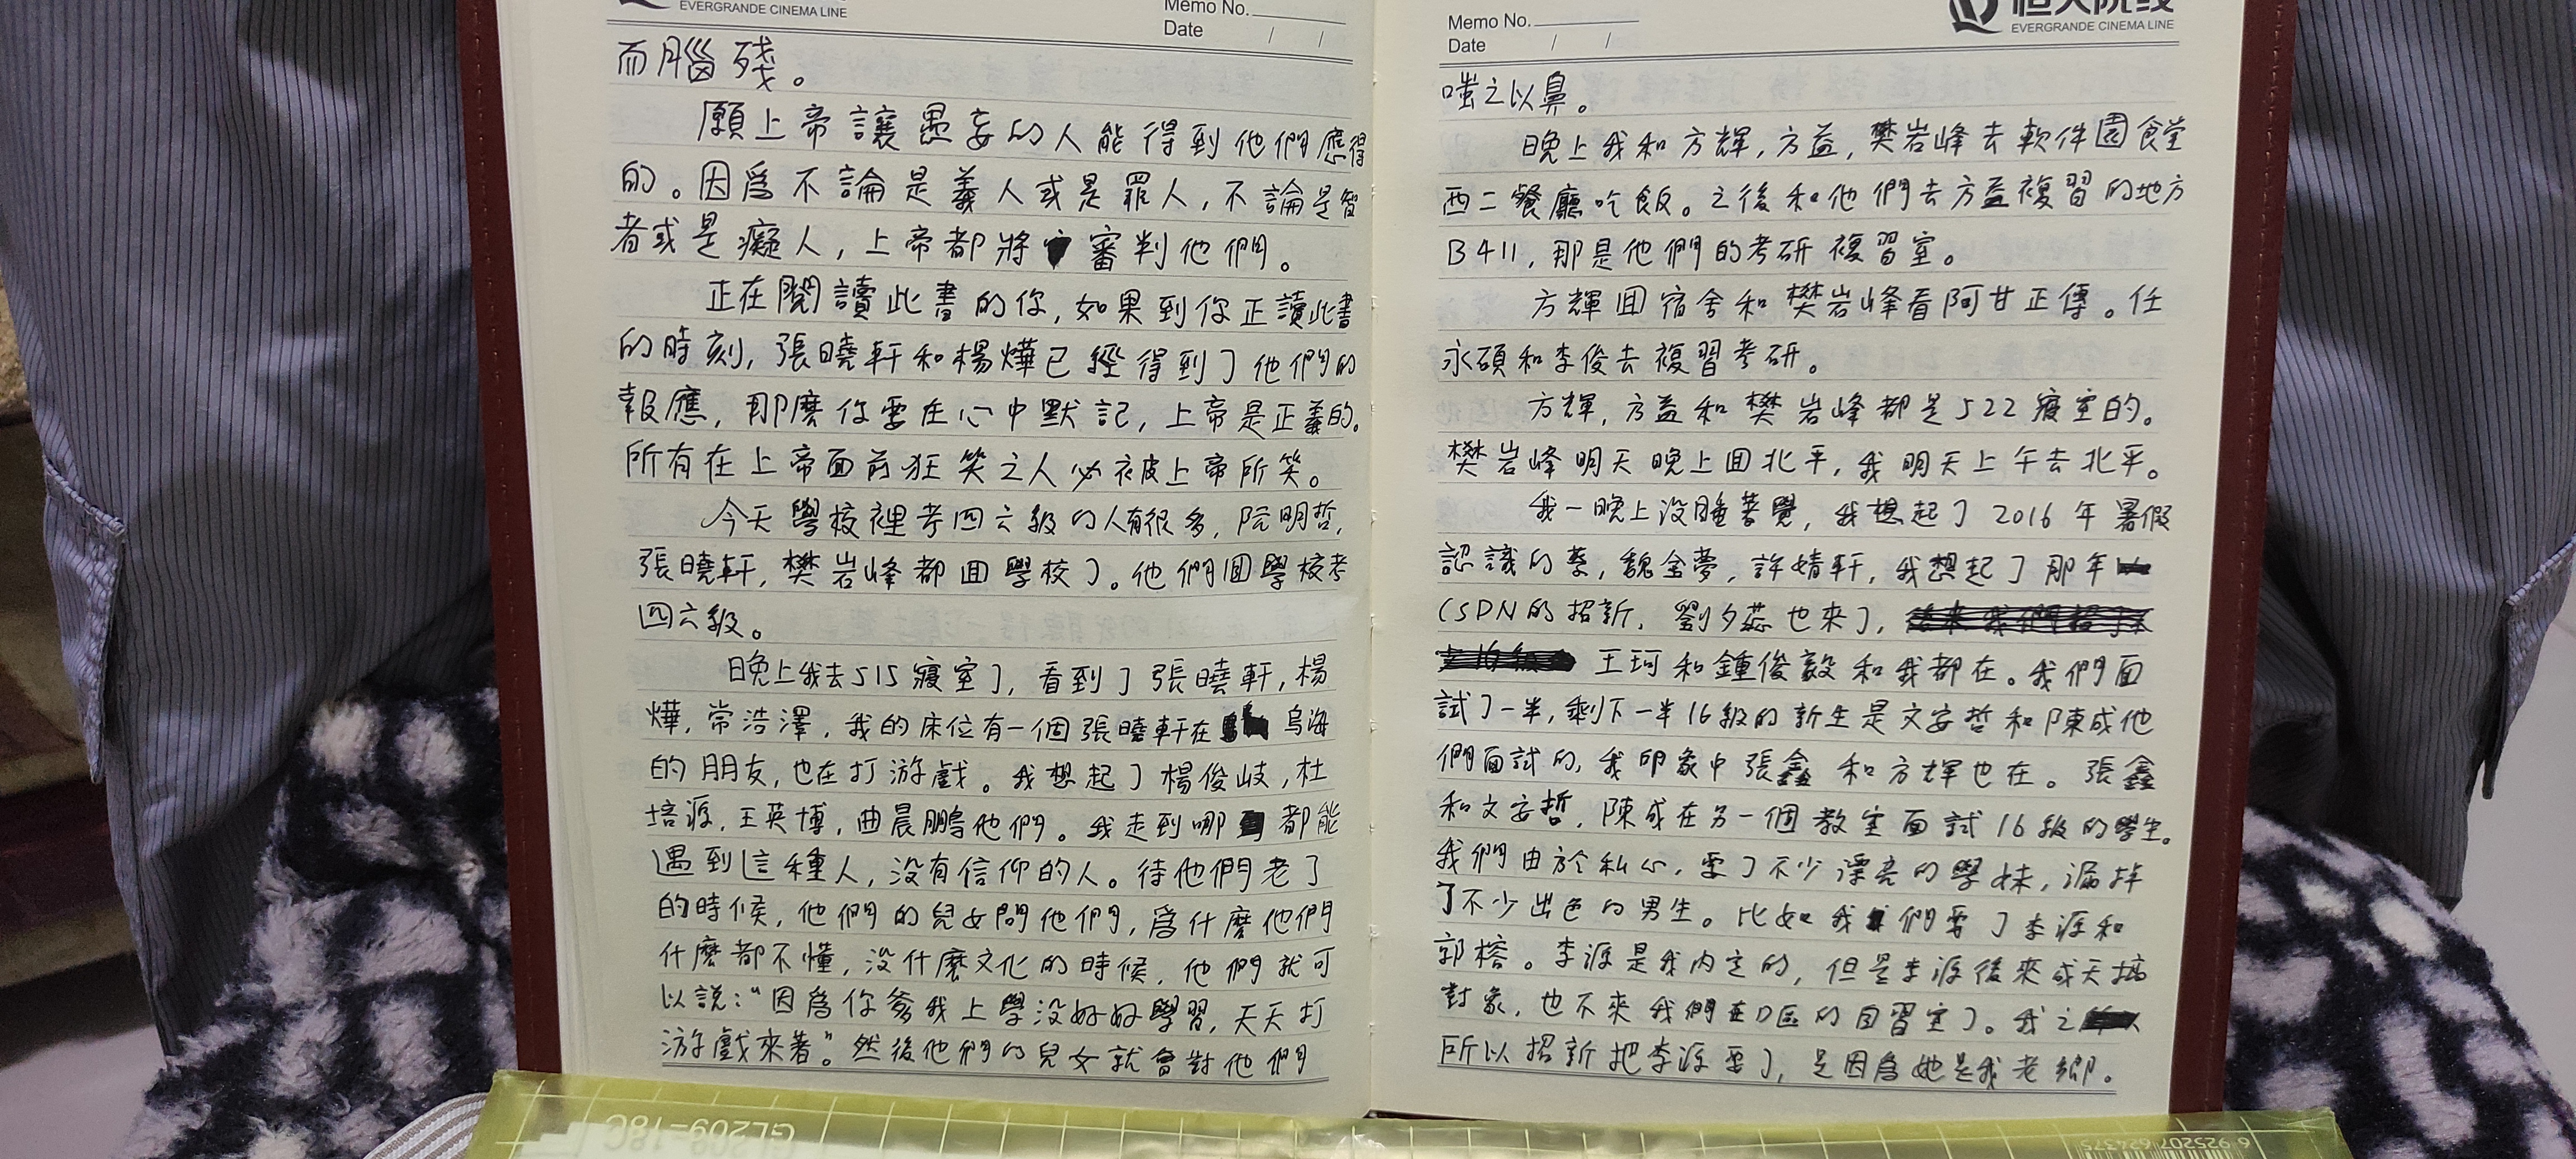 EVERGRANDE CINEMA LINE
Memo No.
Date / /
而腦殘。
願上帝讓愚妄的人能得到他們應得
的。因爲不論是義人或是罪人,不論是智
者或是癡人,上帝都將審判他們。
正在閱讀此書的你,如果到你正讀此書
的時刻,張曉軒和楊燁已經得到了他們的
報應,那麼你要在心中默記,上帝是正義的。
所有在上帝面前狂笑之人必被上帝所笑。
今天學校裡考四六級的人有很多,阮明哲,
張曉軒,樊岩峰都回學校了。他們回學校考
四六級。
晚上我去515寢室了,看到了張曉軒,楊
燁,常浩澤,我的床位有一個張曉軒在烏海
的朋友,也在打游戲。我想起了楊俊岐,杜
培源,王英博,曲晨鵬他們。我走到哪都能
遇到這種人,沒有信仰的人。待他們老了
的時候,他們的兒女問他們,爲什麼他們
什麼都不懂,沒什麼文化的時候,他們就可
以説:“因爲你爹我上學沒好好學習,天天打
游戲來著”。然後他們的兒女就會對他們
Memo No.
Date / /
恒大院线
EVERGRANDE CINEMA LINE
嗤之以鼻。
晚上我和方輝,方益,樊岩峰去軟件園食堂
西二餐廳吃飯。之後和他們去方益複習的地方
B411,那是他們的考研複習室。
方輝回宿舍和樊岩峰看阿甘正傳。任
永碩和李俊去複習考研。
方輝,方益和樊岩峰都是522寢室的。
樊岩峰明天晚上回北平,我明天上午去北平。
我一晚上沒睡著覺,我想起了2016年暑假
認識的蔡,魏金夢,許婧軒,我想起了那年
CSDN的招新,劉夕蕊也來了,
王珂和鍾俊毅和我都在。我們面
試了一半,剩下一半16級的新生是文安哲和陳成他
們面試的,我印象中張鑫和方輝也在。張鑫
和文安哲,陳成在另一個教室面試16級的學生。
我們由於私心,要了不少漂亮的學妹,漏掉
了不少出色的男生。比如我們要了李源和
郭榕。李源是我内定的,但是李源後來成天搞
對象,也不來我們在D區的自習室了。我之
所以招新把李源要了,是因爲她是我老鄉。
GL209-18C
6 925207 624375